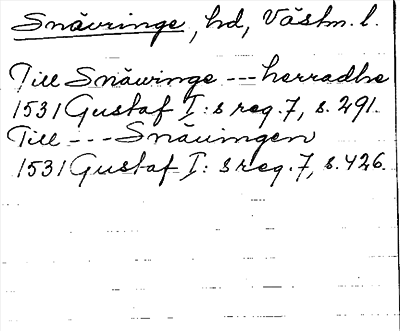 Snävringe, hd, Västm. l.
Till Snäwinge --- herradhe
1531 Gustaf I:s reg. 7, s. 291.
Till --- Snäuingen
1531 Gustaf I:s reg. 7, s. 426.